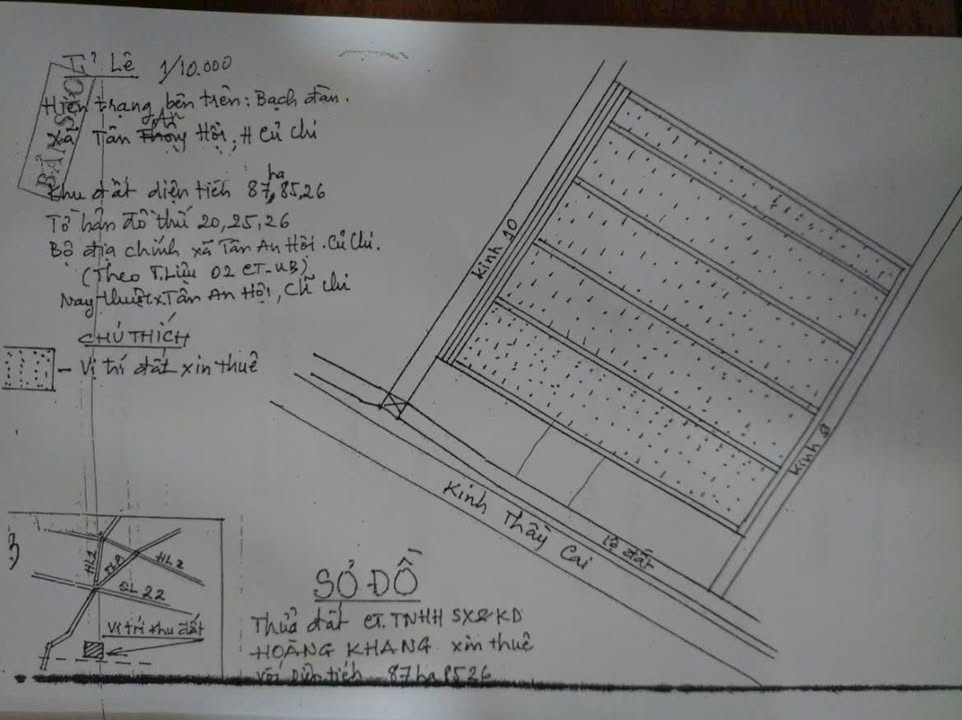 Tỉ Lê 1/10.000
BẢN SAO
Hiện trạng bên trên: Bạch đàn.
Xã Tân An Hội, H Củ Chi
Khu đất diện tích 87ha,8526
Tờ bản đồ thứ 20,25,26
Bộ địa chính xã Tân An Hội. Củ Chi.
(Theo T.Liệu 02 CT-UB)
Nay thuộc x. Tân An Hội, Củ Chi
CHÚ THÍCH
- Vị trí đất xin thuê
Kinh 10
Kinh 8
Kinh Thầy Cai
Lộ đất
HL2
TL8
HL2
QL22
Vị trí khu đất
SƠ ĐỒ
Thửa đất CT.TNHH SX&KD
HOÀNG KHANG xin thuê
Với diện tích 87ha8526